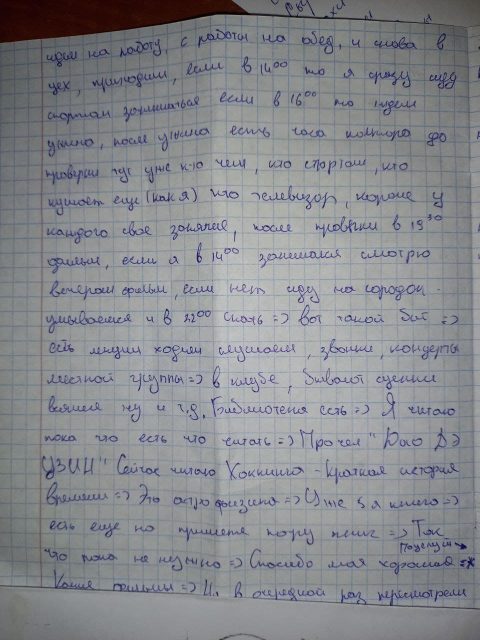 идем на работу с работы на обед, и снова в
цех, приходим, если в 14⁰⁰ то я сразу иду
спортом заниматься если в 16⁰⁰ то идем
ужина, после ужина есть часа полтора до
проверки тут уже кто чем, кто спортом, кто
кушает еще (как я) кто телевизор, короче у
каждого свое занятие, после проверки в 19³⁰
фильм, если я в 14⁰⁰ занимался смотрю
вечером фильм, если нет иду на городок.
умываемся и в 22⁰⁰ спать => вот такой быт =>
есть лекции ходим слушаем, звонки, концерты
местной группы => в клубе, бывают сценки
всякие ну и т.д. Библиотека есть => Я читаю
пока что есть что читать => Прочел "Дао Дэ
Цзин" Сейчас читаю Хокинга - Краткая история
времени => Это астрофизика => Уже 5я книга =>
есть еще но пару книг => Так
что пока не нужно => Спасибо моя хорошая =>
Поцелуи
Какие фильмы => в очередной раз пересмотрели